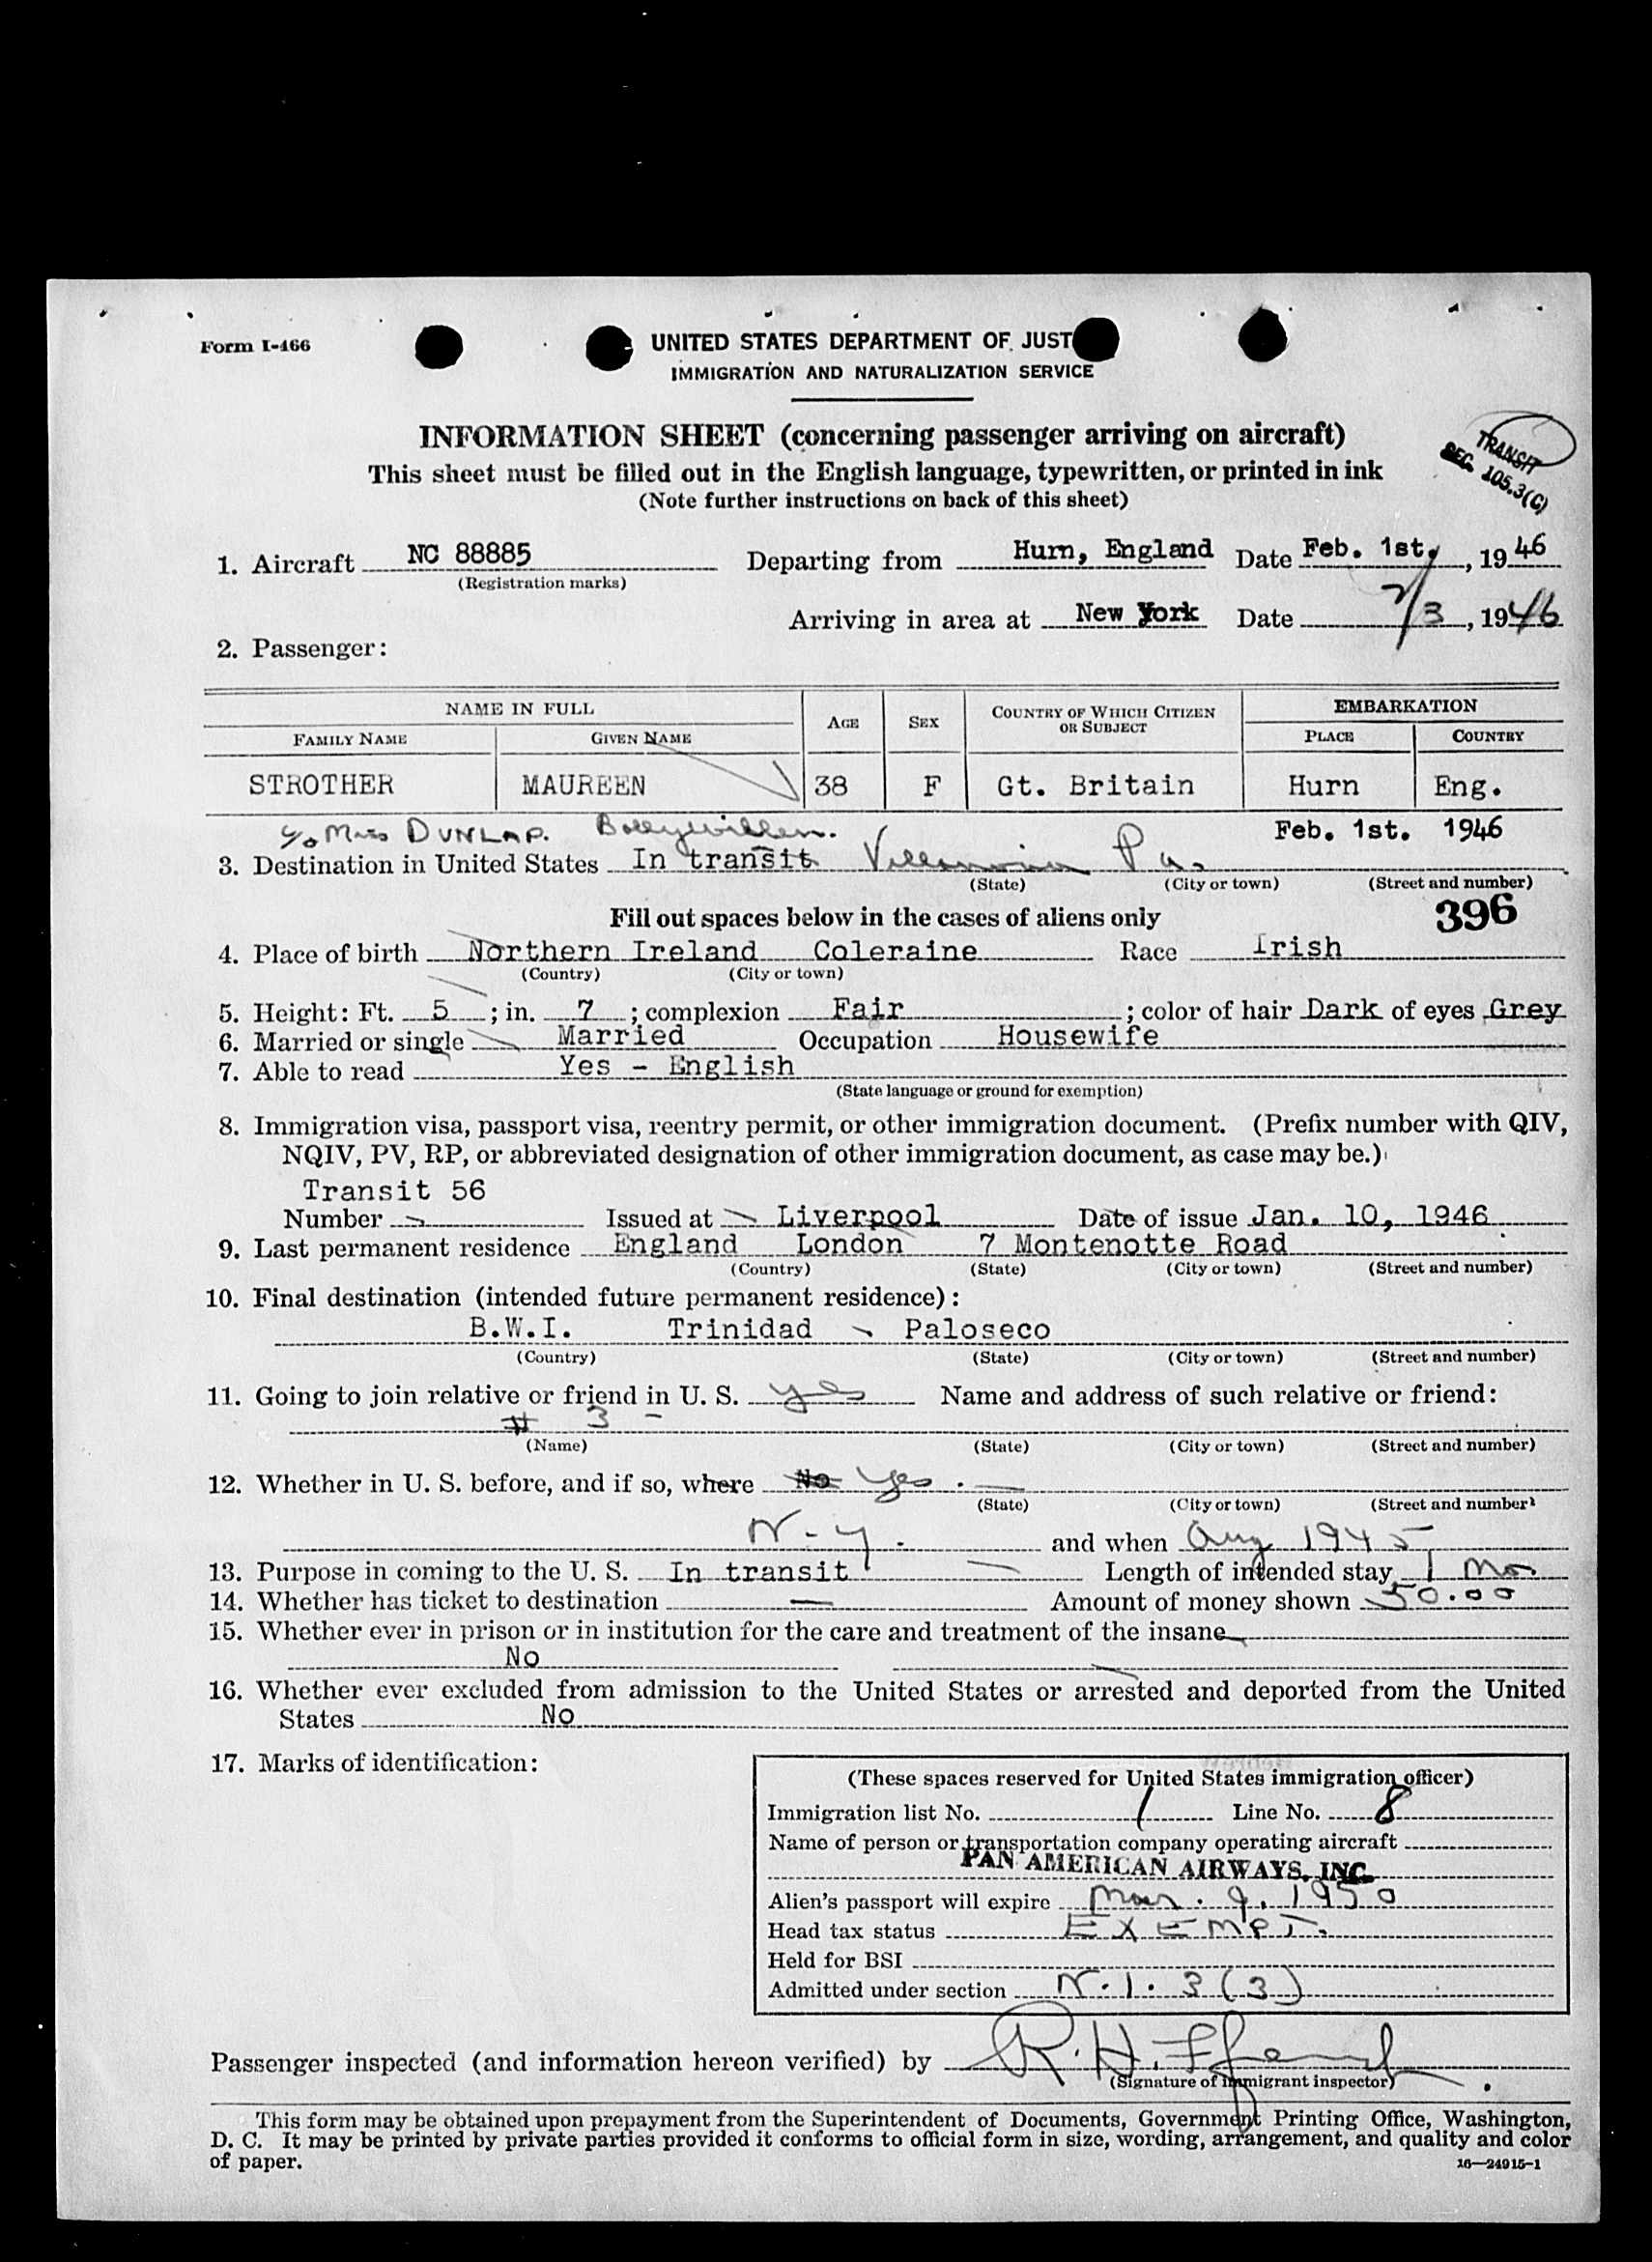 Form I-466
UNITED STATES DEPARTMENT OF JUST
IMMIGRATION AND NATURALIZATION SERVICE
INFORMATION SHEET (concerning passenger arriving on aircraft)
This sheet must be filled out in the English language, typewritten, or printed in ink
(Note further instructions on back of this sheet)
TRANSIT
SEC. 105.3(C)
1. Aircraft NC 88885 Departing from Hurn, England Date Feb. 1st, 1946
(Registration marks)
Arriving in area at New York Date 2/3, 1946
2. Passenger:
NAME IN FULL AGE SEX COUNTRY OF WHICH CITIZEN OR SUBJECT EMBARKATION
FAMILY NAME GIVEN NAME PLACE COUNTRY
STROTHER MAUREEN 38 F Gt. Britain Hurn Eng.
c/o Miss DUNLAP. Feb. 1st. 1946
3. Destination in United States In transit Pa.
(State) (City or town) (Street and number)
Fill out spaces below in the cases of aliens only 396
4. Place of birth Northern Ireland Coleraine Race Irish
(Country) (City or town)
5. Height: Ft. 5; in. 7; complexion Fair; color of hair Dark of eyes Grey
6. Married or single Married Occupation Housewife
7. Able to read Yes - English
(State language or ground for exemption)
8. Immigration visa, passport visa, reentry permit, or other immigration document. (Prefix number with QIV,
NQIV, PV, RP, or abbreviated designation of other immigration document, as case may be.)
Transit 56
Number Issued at Liverpool Date of issue Jan. 10, 1946
9. Last permanent residence England London 7 Montenotte Road
(Country) (State) (City or town) (Street and number)
10. Final destination (intended future permanent residence):
B.W.I. Trinidad Paloseco
(Country) (State) (City or town) (Street and number)
11. Going to join relative or friend in U. S. yes Name and address of such relative or friend:
# 3 -
(Name) (State) (City or town) (Street and number)
12. Whether in U. S. before, and if so, where No Yes.
(State) (City or town) (Street and number)
N-Y. and when Aug 1945
13. Purpose in coming to the U. S. In transit Length of intended stay 1 Mo.
14. Whether has ticket to destination — Amount of money shown 50.00
15. Whether ever in prison or in institution for the care and treatment of the insane
No
16. Whether ever excluded from admission to the United States or arrested and deported from the United
States No
17. Marks of identification:
(These spaces reserved for United States immigration officer)
Immigration list No. 1 Line No. 8
Name of person or transportation company operating aircraft
PAN AMERICAN AIRWAYS, INC.
Alien's passport will expire Mar. 9, 1950
Head tax status EXEMPT.
Held for BSI
Admitted under section N.I. 3(3)
Passenger inspected (and information hereon verified) by R.H.
(Signature of immigrant inspector)
This form may be obtained upon prepayment from the Superintendent of Documents, Government Printing Office, Washington,
D. C. It may be printed by private parties provided it conforms to official form in size, wording, arrangement, and quality and color
of paper.
16—24915-1